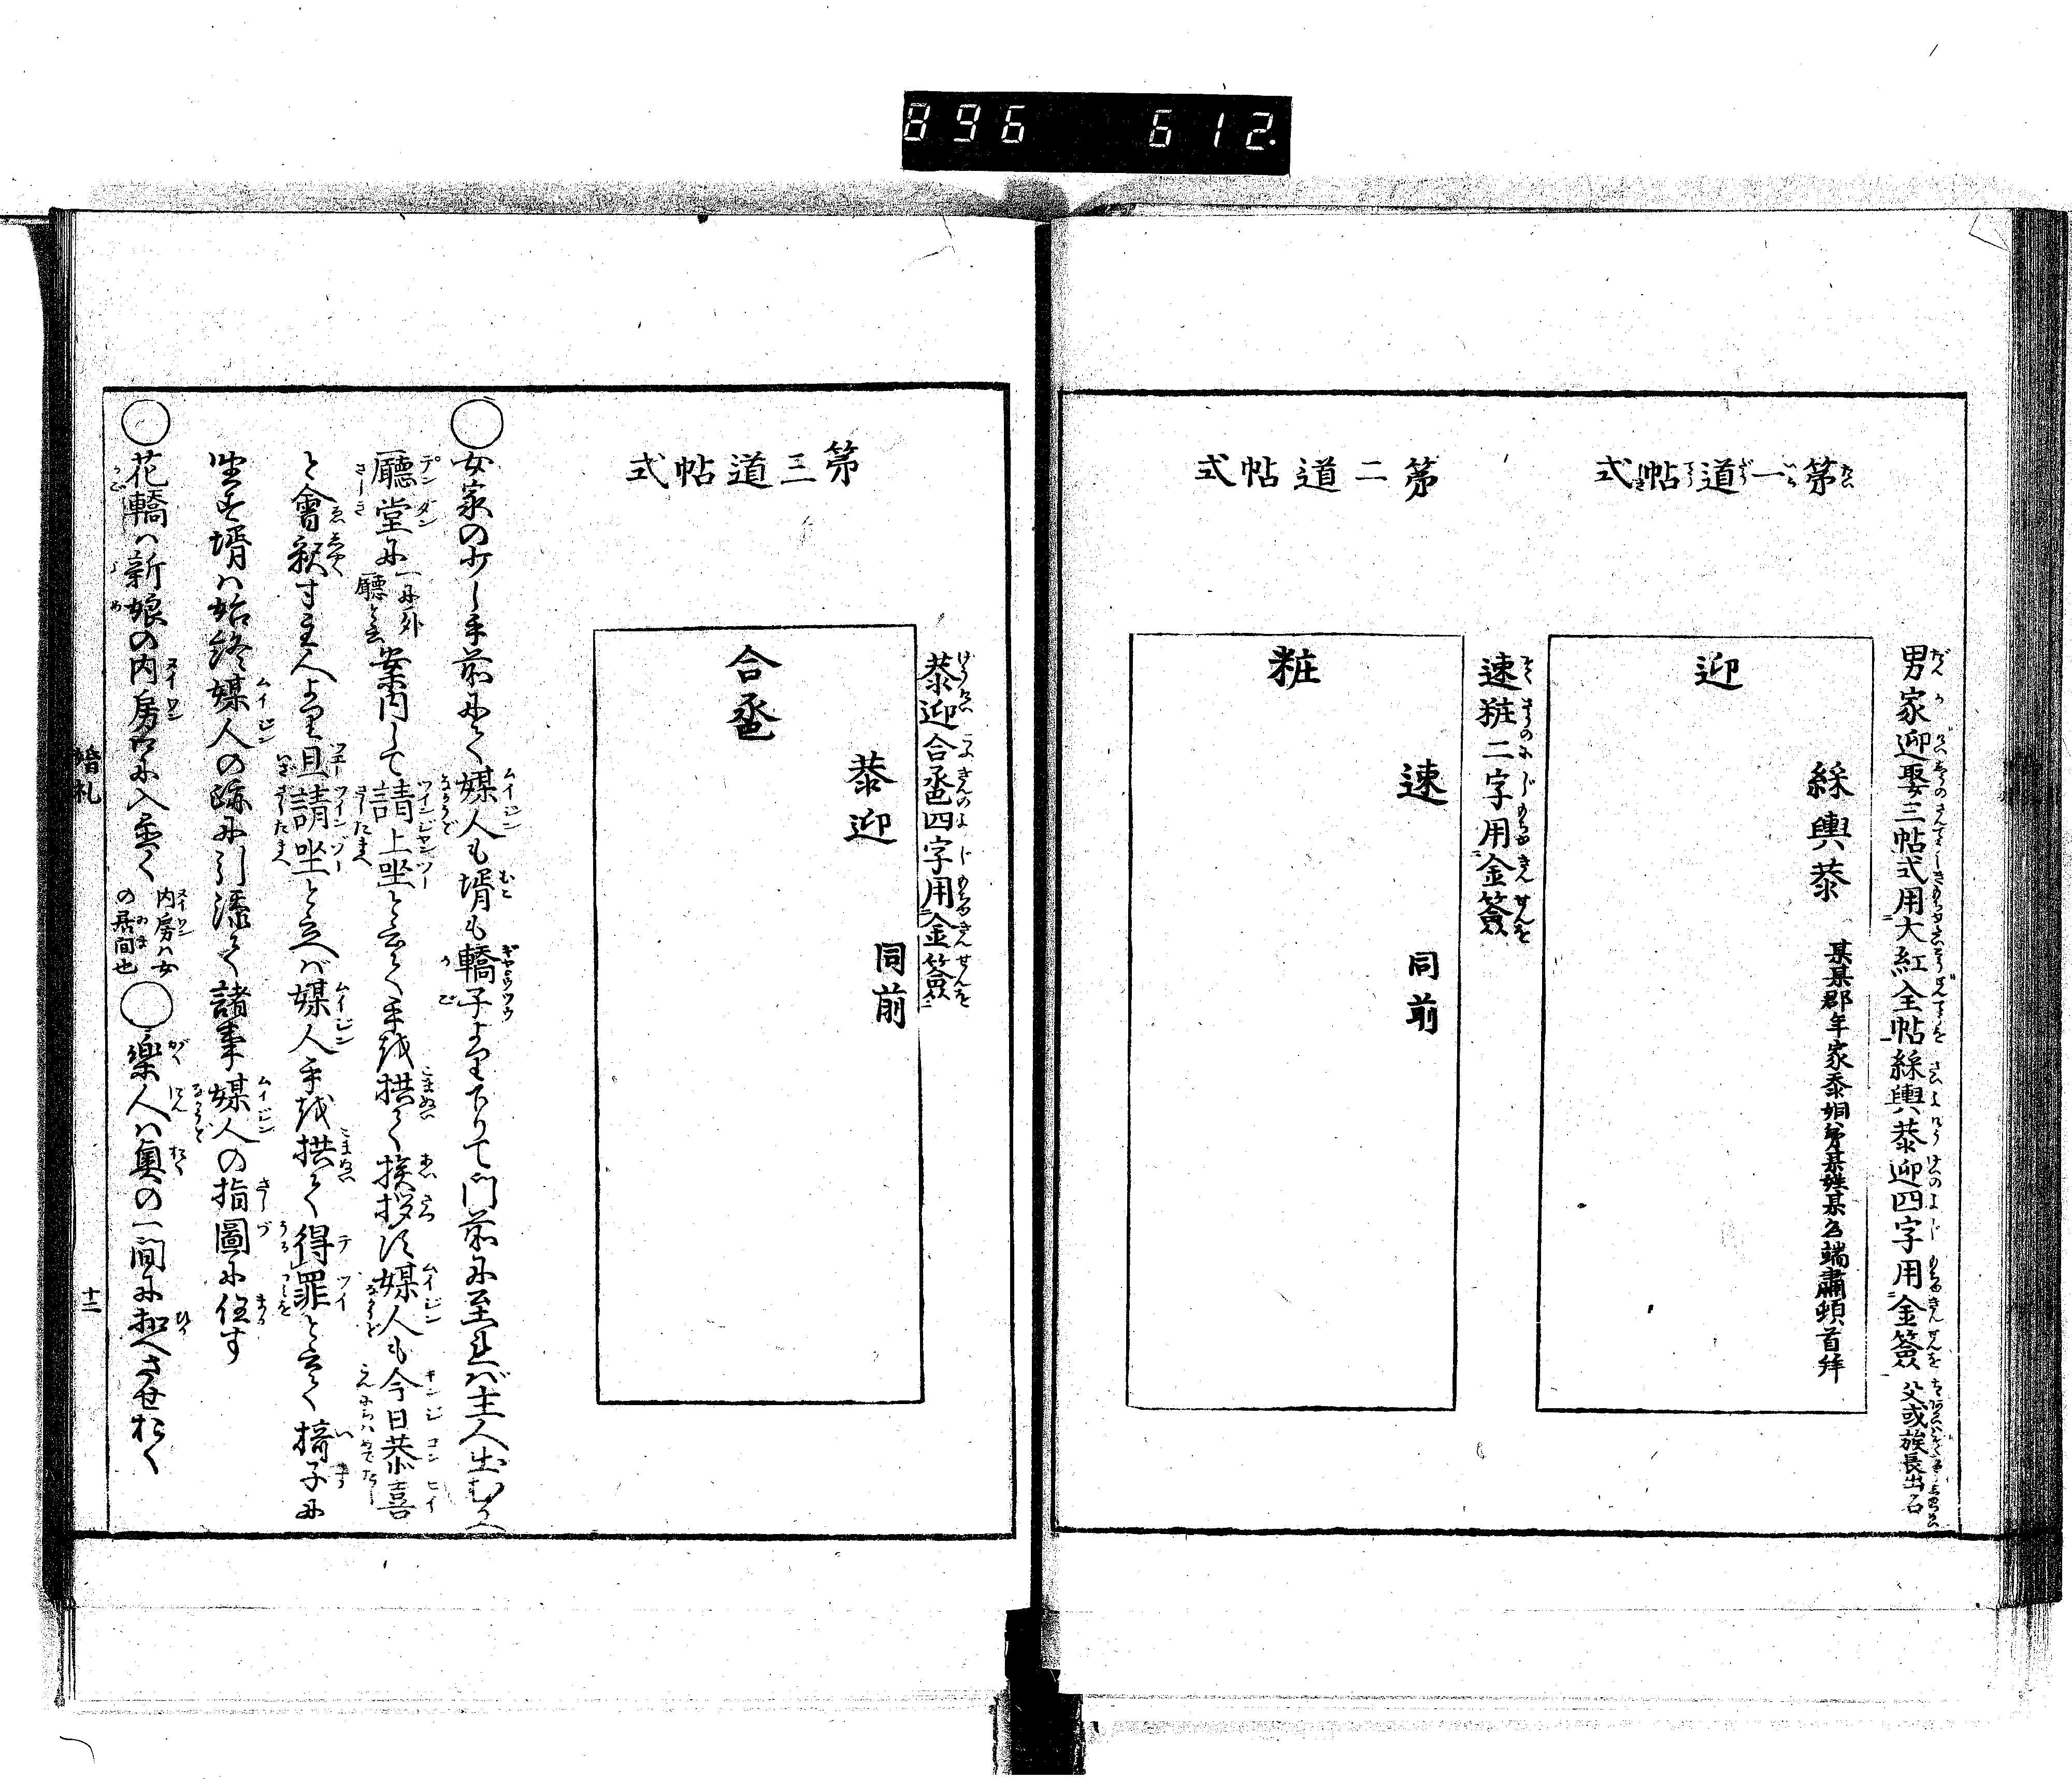 896 612.
男家迎娶三帖式用大紅全帖綵輿恭迎四字用金簽 父或族長出名
第一道帖式
綵輿恭
某某郡年家忝姻弟某姓某名端肅頓首拜
迎
速粧二字用金簽
第二道帖式
速
同前
粧
恭迎合巹四字用金簽
第三道帖式
恭迎
同前
合巹
○女家の少し手前にて媒人も壻も轎子より下りて門前に至れば主人出むかへ
廳堂に一に外廳と云案内して請上坐と云て手を拱て挨拶す媒人も今日恭喜
と會釈す主人より且請坐と云へば媒人手を拱て得罪と云て椅子に
坐す壻は始終媒人の跡に引添て諸事媒人の指圖に任す
○花轎は新娘の内房口に入置く 内房は女の居間也 ○樂人は奥の一間に扣へさせおく
婚礼
十二